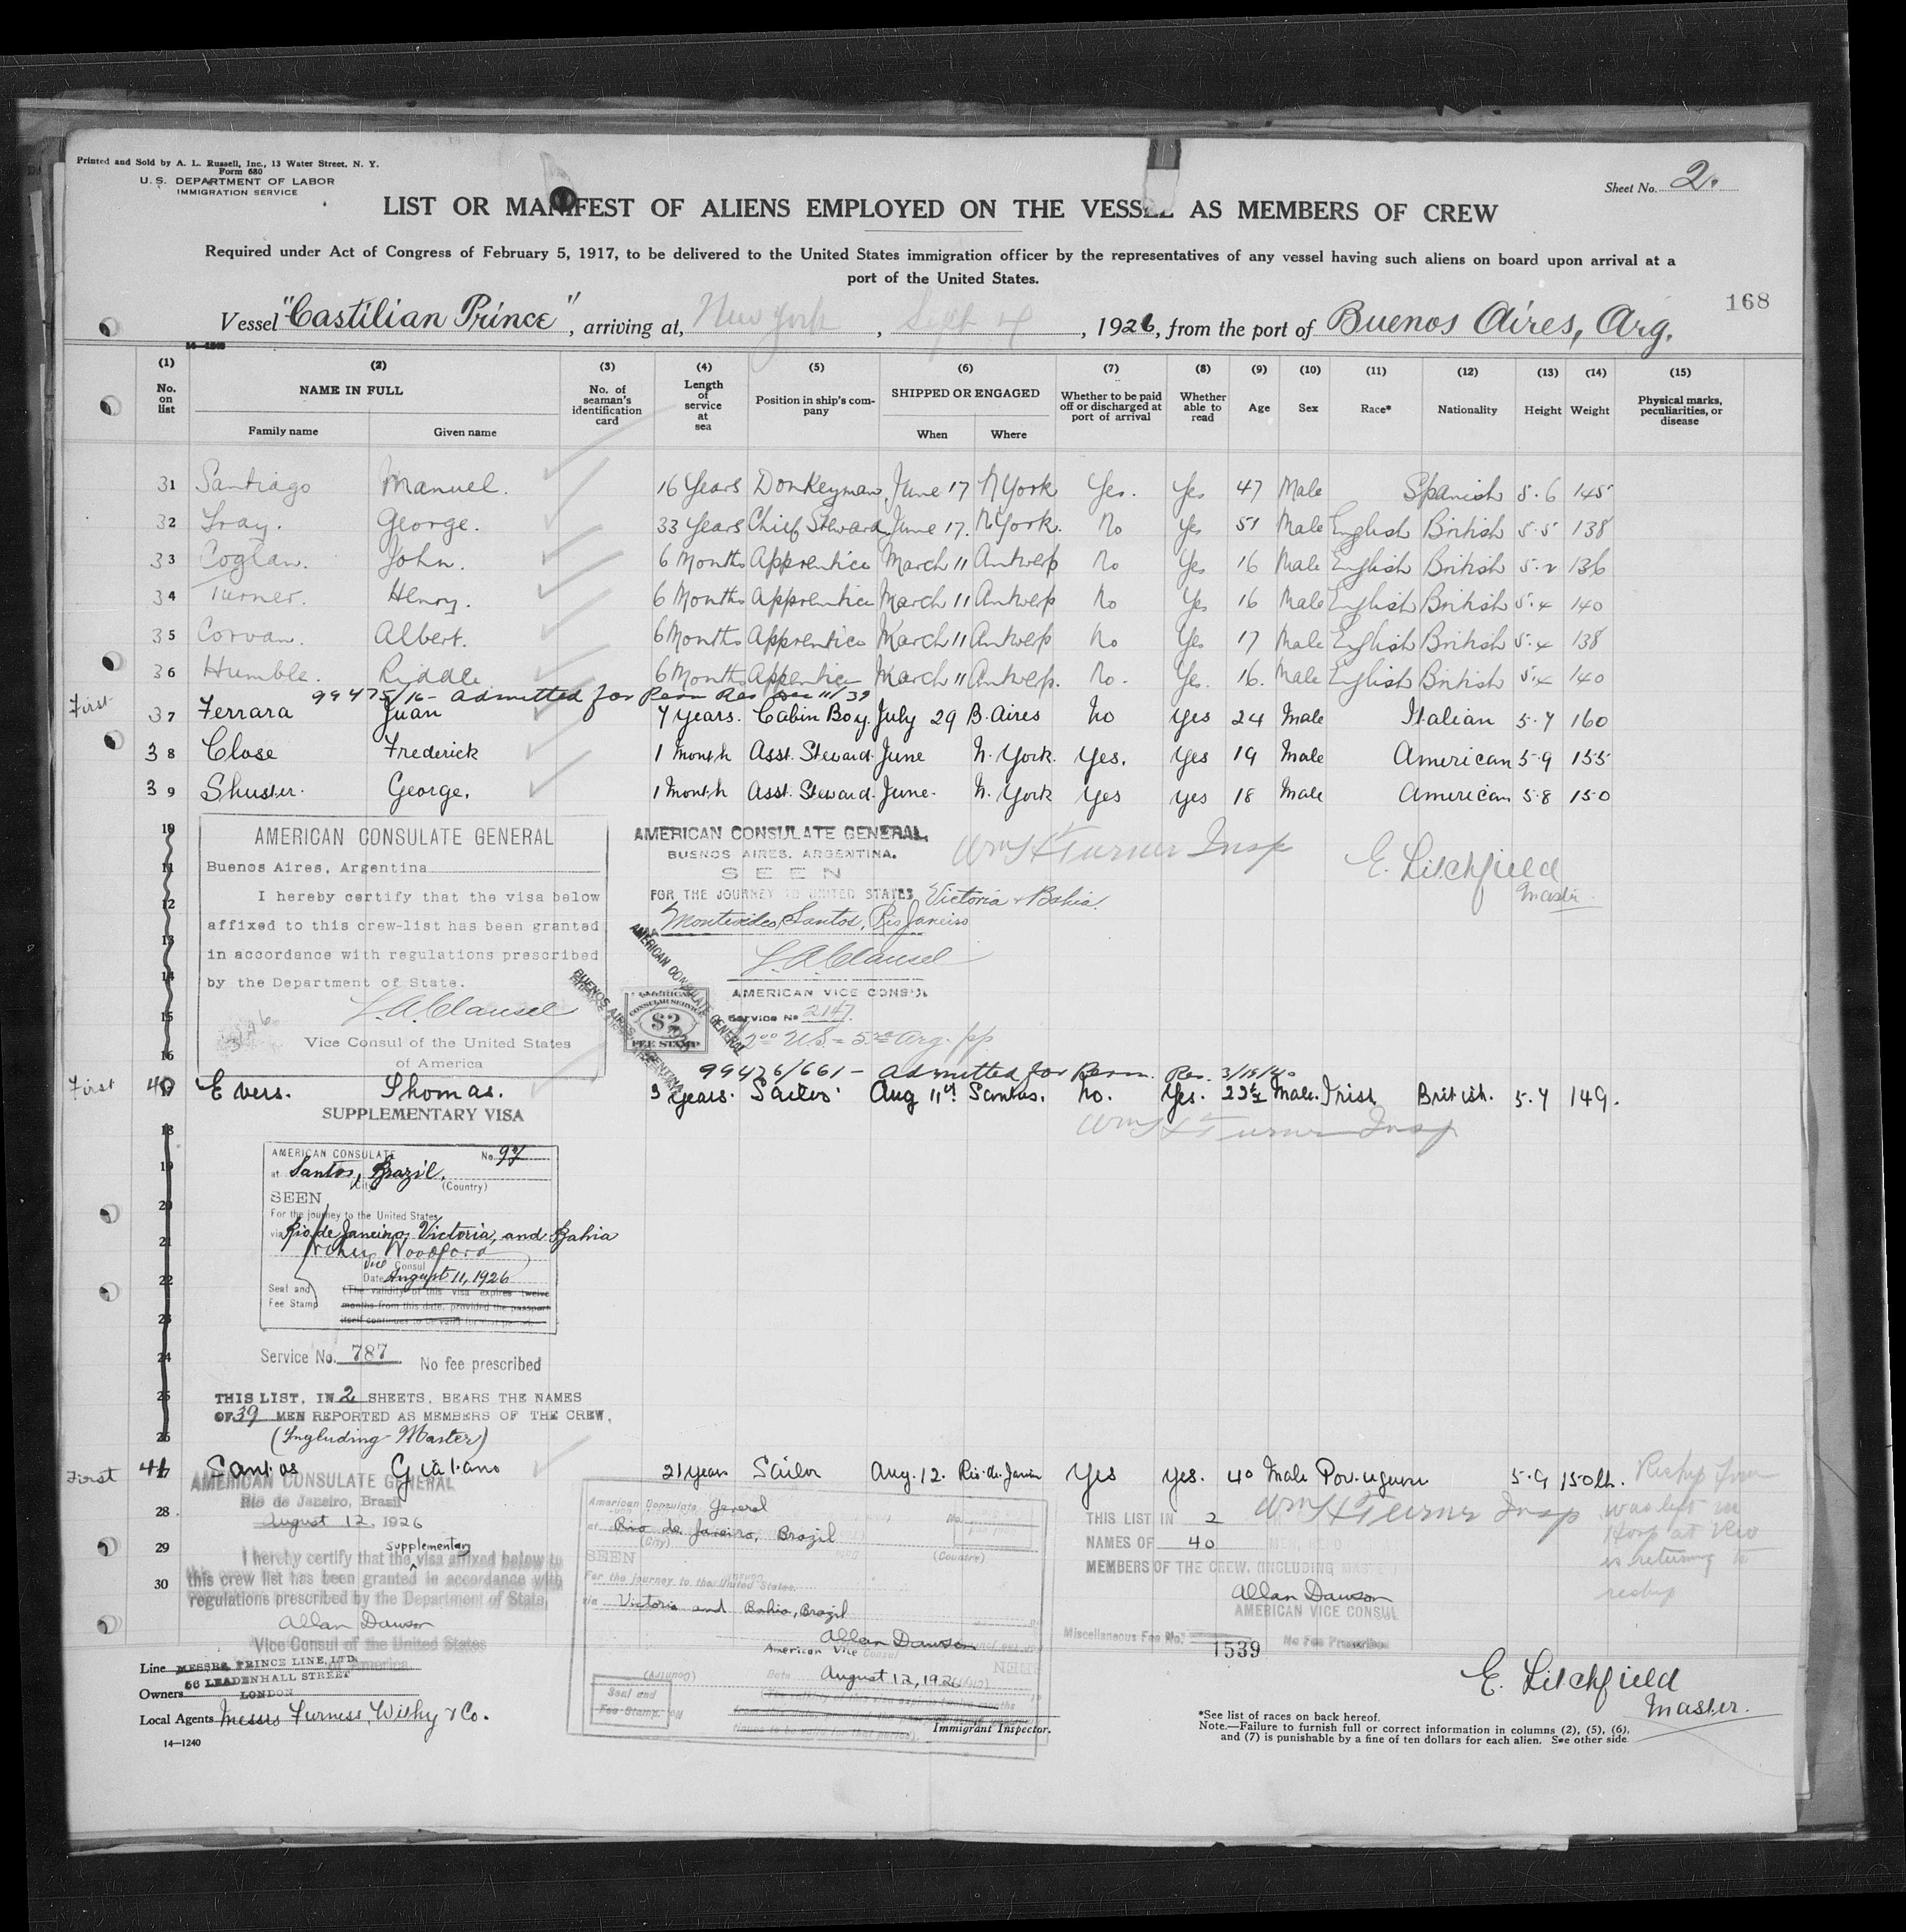 Printed and Sold by A. L. Russell, Inc., 13 Water Street, N. Y.
Form 680
U. S. DEPARTMENT OF LABOR
IMMIGRATION SERVICE
Sheet No. 2.
LIST OR MANIFEST OF ALIENS EMPLOYED ON THE VESSEL AS MEMBERS OF CREW
Required under Act of Congress of February 5, 1917, to be delivered to the United States immigration officer by the representatives of any vessel having such aliens on board upon arrival at a
port of the United States.
168
Vessel "Castilian Prince", arriving at, New York, Sept 4, 1926, from the port of Buenos Aires, Arg.
(1) (2) (3) (4) (5) (6) (7) (8) (9) (10) (11) (12) (13) (14) (15)
No. on list NAME IN FULL No. of seaman's identification card Length of service at sea Position in ship's company SHIPPED OR ENGAGED Whether to be paid off or discharged at port of arrival Whether able to read Age Sex Race* Nationality Height Weight Physical marks, peculiarities, or disease
Family name Given name When Where
31 Santiago Manuel. 16 Years Donkeyman June 17 N York Yes. Yes 47 Male Spanish 5.6 145
32 Gray. George. 33 Years Chief Steward June 17. N York. No Yes 51 Male English British 5.5 138
33 Coglan. John. 6 Months Apprentice March 11 Antwerp No Yes 16 Male English British 5.2 136
34 Turner. Henry. 6 Months Apprentice March 11 Antwerp No Yes 16 Male English British 5.4 140
35 Corvan. Albert. 6 Months Apprentice March 11 Antwerp No Yes 17 Male English British 5.4 138
36 Humble. Riddle 6 Months Apprentice March 11 Antwerp. No. Yes. 16. Male English British 5.4 140
99475/16 - Admitted for Perm Res Dec 11/39
First 37 Ferrara Juan 7 years. Cabin Boy. July 29 B. Aires No Yes 24 Male Italian 5.7 160
38 Close Frederick 1 month Asst. Steward June N. York. Yes. Yes 19 Male American 5.9 155
39 Shuster. George. 1 month Asst. Steward. June. N. York Yes yes 18 Male American 5.8 150
AMERICAN CONSULATE GENERAL
Buenos Aires, Argentina
I hereby certify that the visa below
affixed to this crew-list has been granted
in accordance with regulations prescribed
by the Department of State.
L.A. Clausel
Vice Consul of the United States
of America
AMERICAN CONSULATE GENERAL,
BUENOS AIRES, ARGENTINA.
SEEN
FOR THE JOURNEY TO UNITED STATES Victoria & Bahia.
Montevideo, Santos, Rio Janeiro
L.A. Clausel
AMERICAN VICE CONSUL
Service No 2147.
2.00 U.S. =
AMERICAN CONSULATE GENERAL
BUENOS AIRES ARGENTINA
AMERICAN
CONSULAR SERVICE
$2
FEE STAMP
Wm H Turner Insp
E. Litchfield
Master
10
11
12
13
14
15
16
99426/661 - Admitted for Perm. Res. 3/19/40
First 40 Evers. Thomas. 3 years. Sailor Aug 11th Santos. No. Yes. 23 Male. Irish British. 5.7 149.
Wm H Turner Insp
SUPPLEMENTARY VISA
AMERICAN CONSULATE No. 97
at Santos, Brazil.
(City) (Country)
SEEN
For the journey to the United States
via Rio de Janeiro, Victoria, and Bahia
Archer Woodford
Vice Consul
Date August 11, 1926
Seal and Fee Stamp
(The validity of this visa expires twelve
months from this date, provided the passport
itself continues to be valid for that period.)
18
19
20
21
22
23
24
25
26
Service No. 787 No fee prescribed
THIS LIST, IN 2 SHEETS, BEARS THE NAMES
OF 39 MEN REPORTED AS MEMBERS OF THE CREW,
(Including Master)
First 41 Santos Gialiano 21 years Sailor Aug. 12. Rio de Janeiro Yes Yes. 40 Male Portuguese 5.9 150 lb.
Wm H Turner Insp
was left in
Hosp at Rio
is returning to
reship
28
29
30
AMERICAN CONSULATE GENERAL
Rio de Janeiro, Brasil
August 12, 1926
supplementary
I hereby certify that the visa affixed below to
this crew list has been granted in accordance with
regulations prescribed by the Department of State.
Allan Dawson
Vice Consul of the United States
of America
American Consulate General
at Rio de Janeiro, Brazil
(City) (Country)
SEEN
For the journey to the United States.
via Victoria and Bahia, Brazil
Allan Dawson
American Vice Consul
Date August 12, 1926
Seal and
Fee Stamp.
THIS LIST IN 2
NAMES OF 40 MEN
MEMBERS OF THE CREW. (INCLUDING MASTER)
Allan Dawson
AMERICAN VICE CONSUL
Miscellaneous Fee No. 1539 No Fee Prescribed
Line MESSRS PRINCE LINE, LTD.
56 LEADENHALL STREET
Owners LONDON
Local Agents Messrs Furness, Withy & Co.
14—1240
Immigrant Inspector.
E. Litchfield
Master.
*See list of races on back hereof.
Note.—Failure to furnish full or correct information in columns (2), (5), (6),
and (7) is punishable by a fine of ten dollars for each alien. See other side